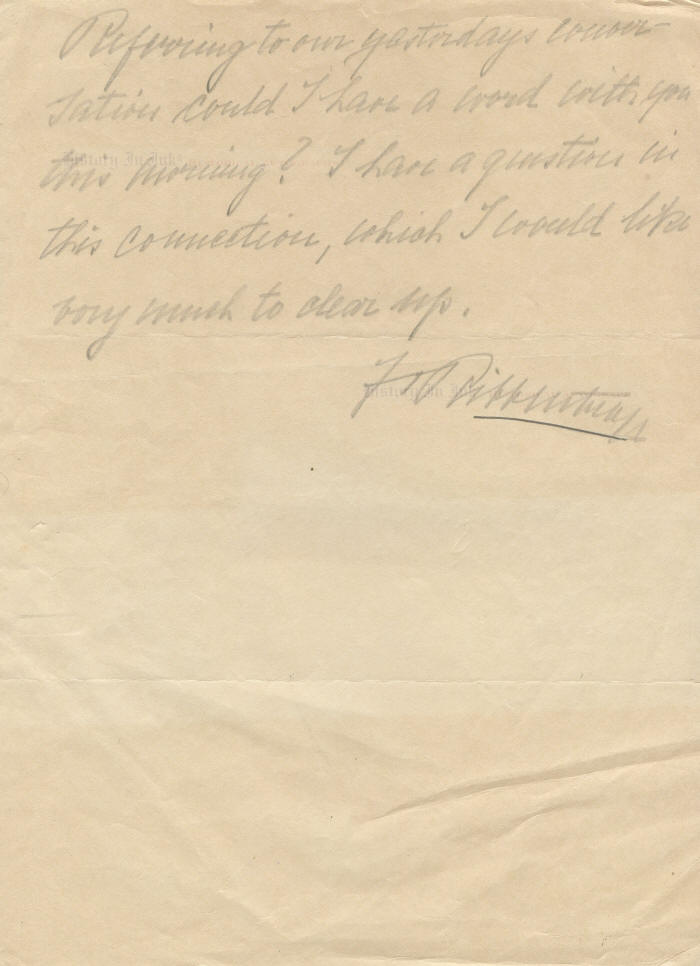 Referring to our yesterdays conver-
sation could I have a word with you
this morning? I have a question in
this connection, which I would like
very much to clear up.
J v Ribbentrop
History In Ink
History In Ink